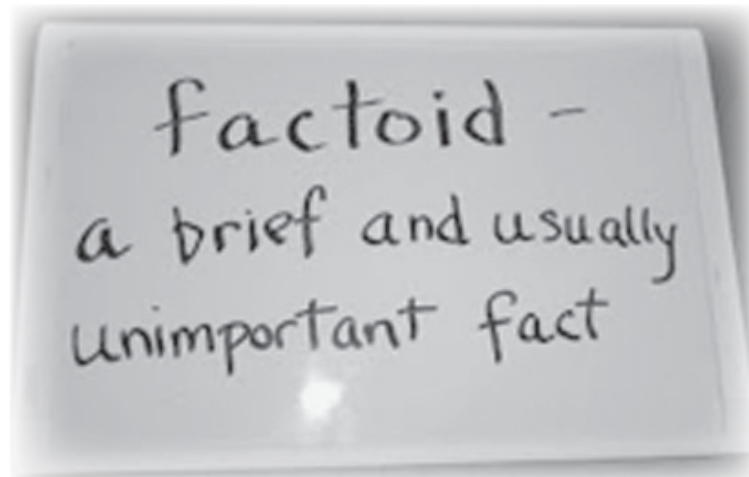 factoid -
a brief and usually
unimportant fact